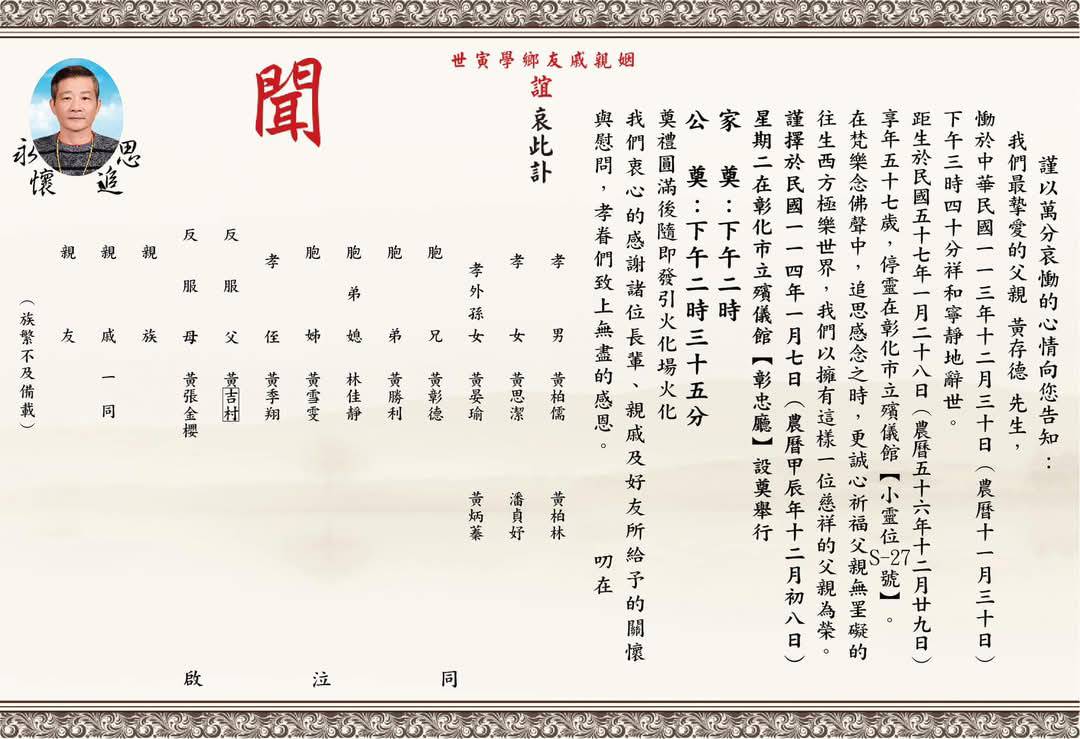 謹以萬分哀慟的心情向您告知：
我們最摯愛的父親 黃存德 先生，
慟於中華民國一一三年十二月三十日（農曆十一月三十日）
下午三時四十分祥和寧靜地辭世。
距生於民國五十七年一月二十八日（農曆五十六年十二月廿九日）
享年五十七歲，停靈在彰化市立殯儀館【小靈位S-27號】。
在梵樂念佛聲中，追思感念之時，更誠心祈福父親無罣礙的
往生西方極樂世界，我們以擁有這樣一位慈祥的父親為榮。
謹擇於民國一一四年一月七日（農曆甲辰年十二月初八日）
星期二在彰化市立殯儀館【彰忠廳】設奠舉行
家 奠：下午二時
公 奠：下午二時三十五分
奠禮圓滿後隨即發引火化場火化
我們衷心的感謝諸位長輩、親戚及好友所給予的關懷
與慰問，孝眷們致上無盡的感恩。 叨在
姻親戚友鄉學寅世
誼
哀此訃
聞
孝男 黃柏儒 黃柏林
孝女 黃思潔 潘貞妤
孝外孫女 黃晏瑜 黃炳蓁
胞兄 黃彰德
胞弟 黃勝利
胞弟媳 林佳靜
胞姊 黃雪雯
孝侄 黃季翔
反服父 黃吉村
反服母 黃張金櫻
親族
親戚一同
親友
（族繁不及備載）
同 泣 啟
追思
永懷